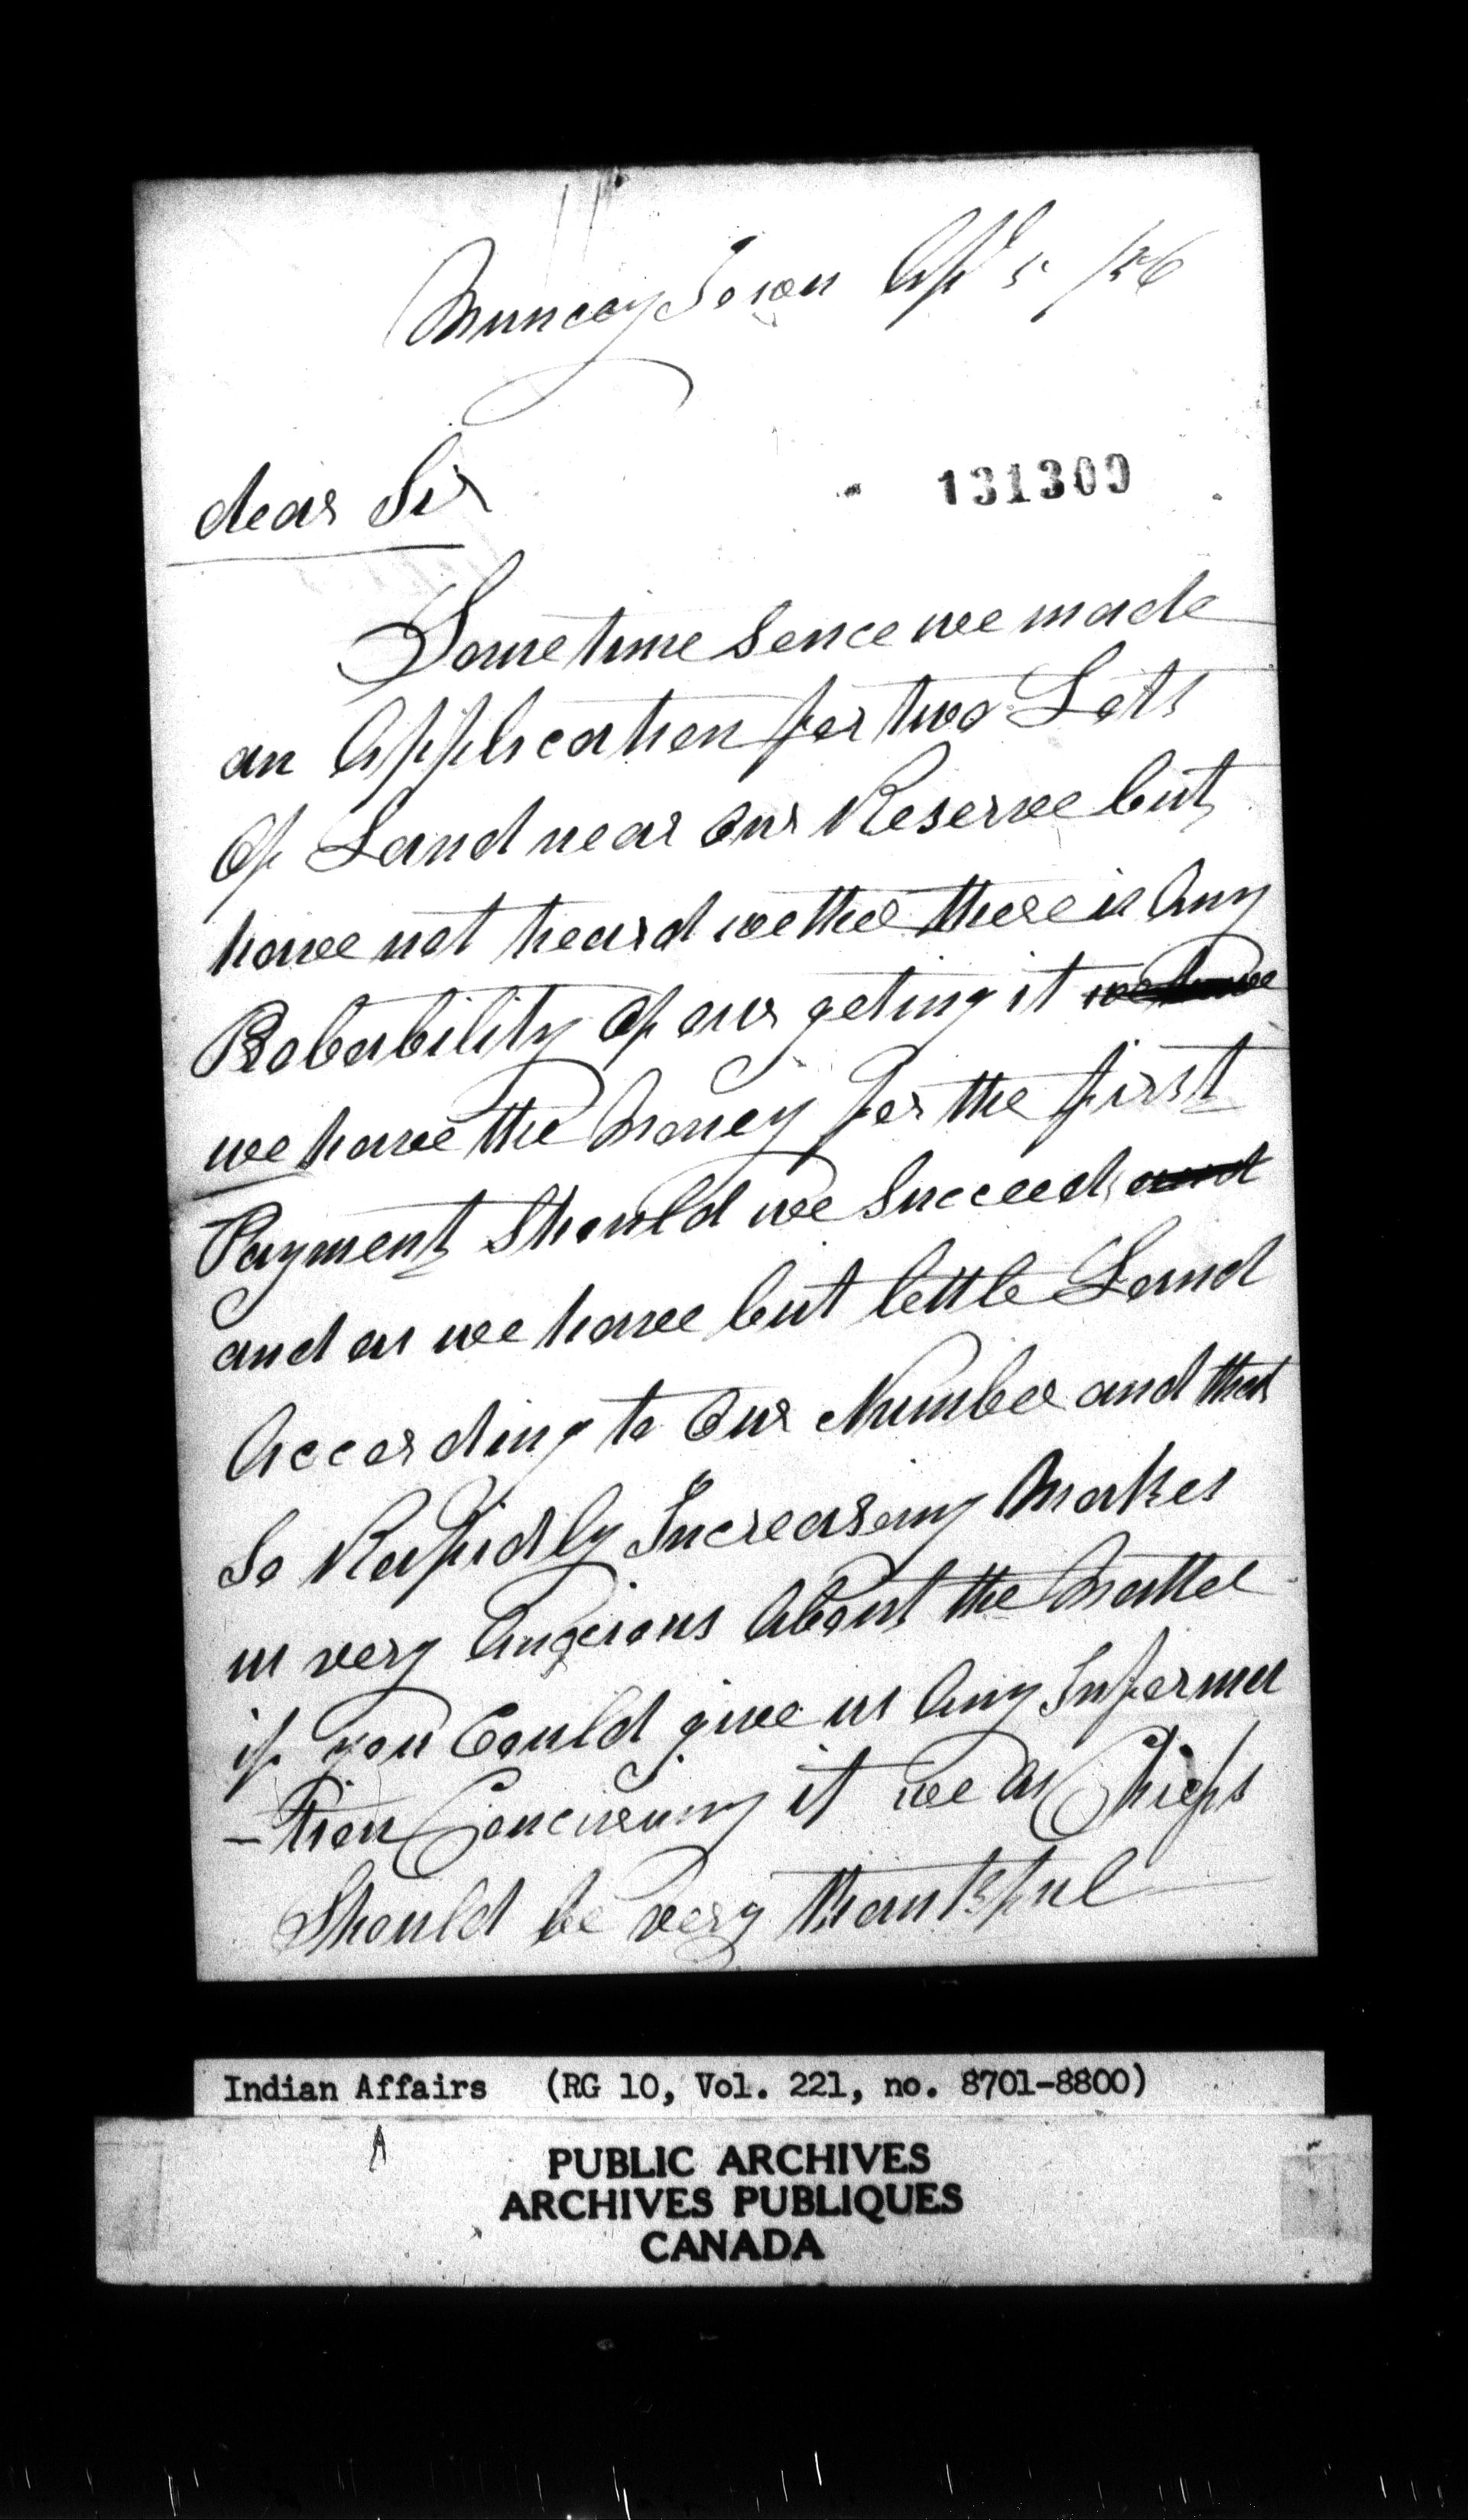 Muncey Town Apl 5 /56
dear Sir
131309
Sometime Sence we made
an Application for two Lots
Of Land near Our Reserve but
have not heard wether there is Any
Probability Of our geting it we have
we have the Money for the first
Payment Should we Succeed and
and as we have but little Land
According to Our Number and that
So Rapidly Increaseing Makes
us very Anxcious About the Matter
if you Could give us Any Informa
-tion Concirning it we as Chiefs
Should be very thankful
Indian Affairs (RG 10, Vol. 221, no. 8701-8800)
PUBLIC ARCHIVES
ARCHIVES PUBLIQUES
CANADA